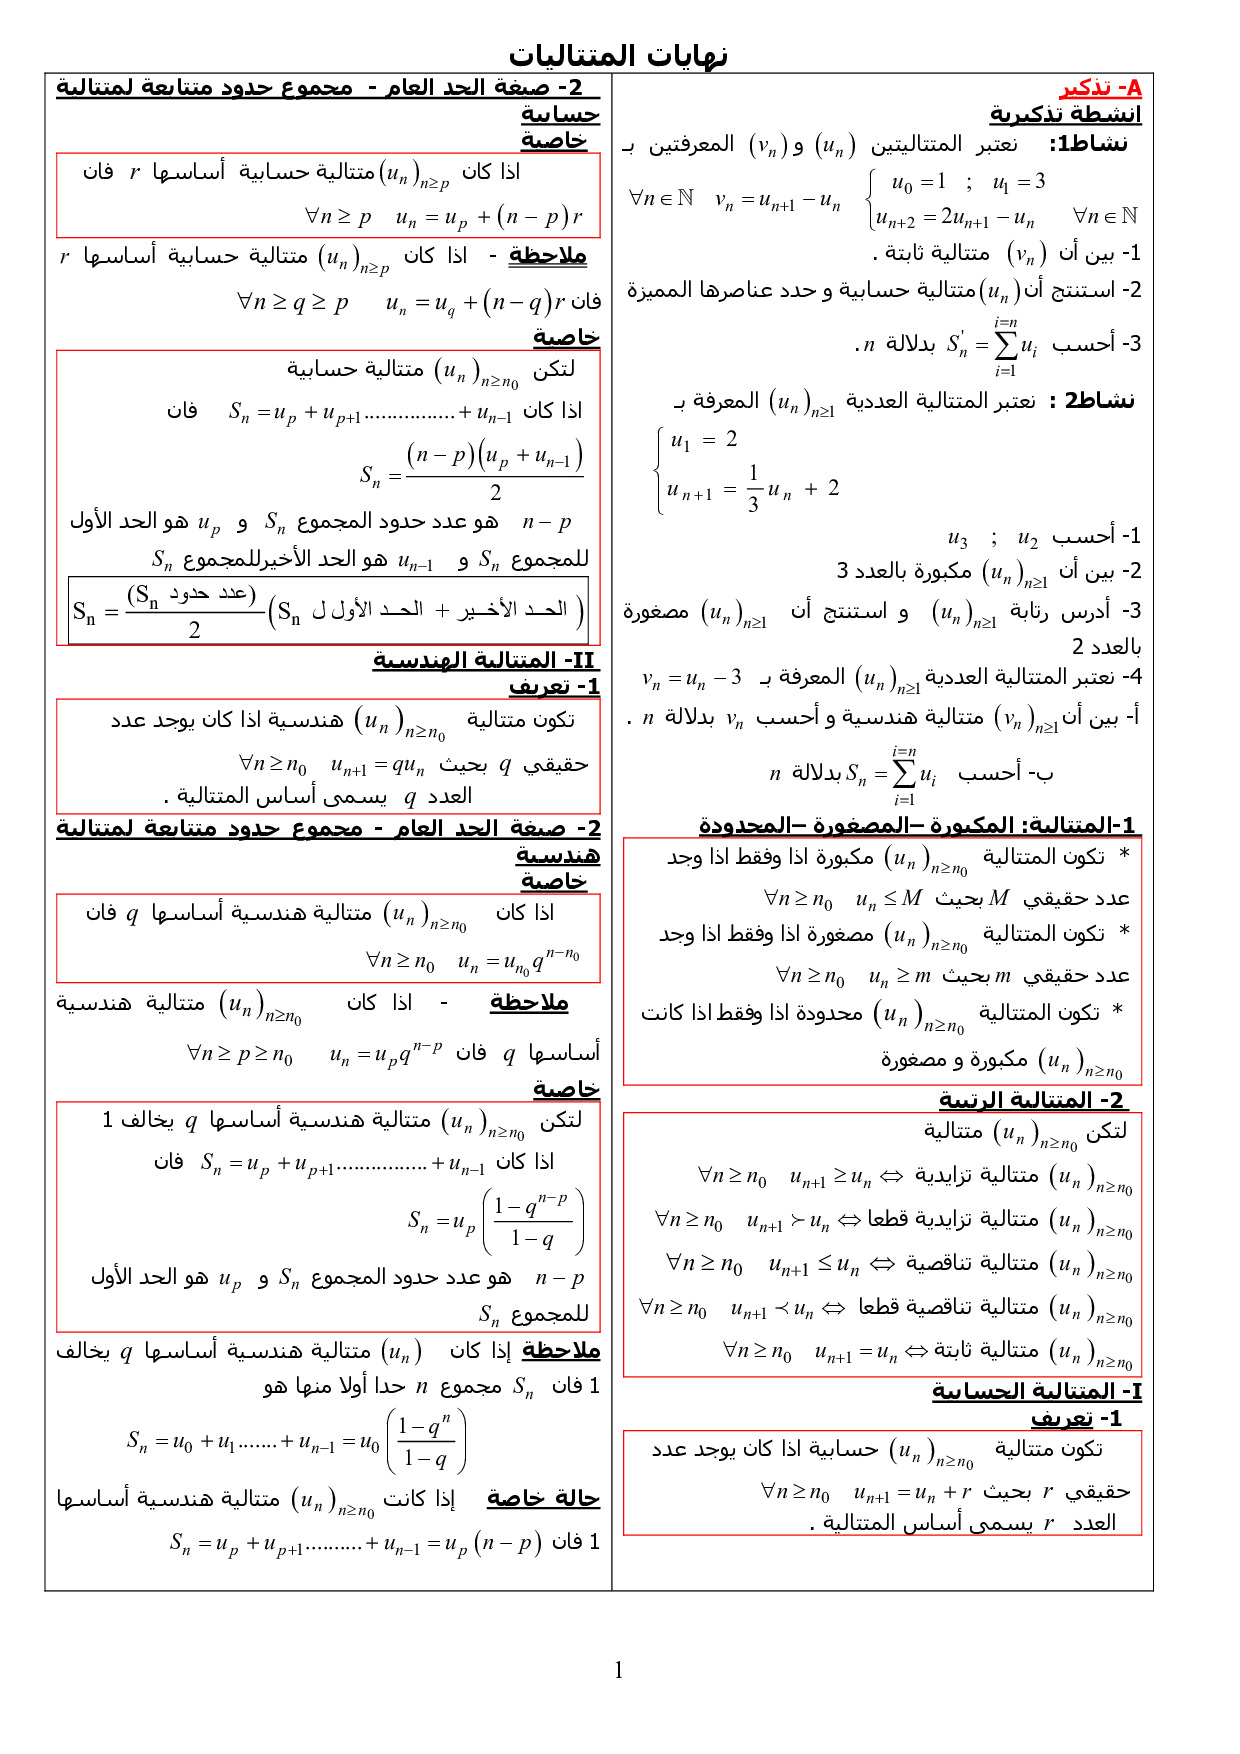 نهايات المتتاليات
A- تذكير
انشطة تذكيرية
نشاط1: نعتبر المتتاليتين (u_n) و (v_n) المعرفتين بـ
{ u_0 = 1 ; u_1 = 3
u_{n+2} = 2u_{n+1} − u_n ∀n ∈ ℕ
v_n = u_{n+1} − u_n ∀n ∈ ℕ
1- بين أن (v_n) متتالية ثابتة .
2- استنتج أن (u_n) متتالية حسابية و حدد عناصرها المميزة
3- أحسب S'_n = ∑_{i=1}^{i=n} u_i بدلالة n .
نشاط2 : نعتبر المتتالية العددية (u_n)_{n≥1} المعرفة بـ
{ u_1 = 2
u_{n+1} = 1/3 u_n + 2
1- أحسب u_2 ; u_3
2- بين أن (u_n)_{n≥1} مكبورة بالعدد 3
3- أدرس رتابة (u_n)_{n≥1} و استنتج أن (u_n)_{n≥1} مصغورة
بالعدد 2
4- نعتبر المتتالية العددية (u_n)_{n≥1} المعرفة بـ v_n = u_n − 3
أ- بين أن (v_n)_{n≥1} متتالية هندسية و أحسب v_n بدلالة n .
ب- أحسب S_n = ∑_{i=1}^{i=n} u_i بدلالة n
1-المتتالية: المكبورة –المصغورة –المحدودة
* تكون المتتالية (u_n)_{n≥n_0} مكبورة اذا وفقط اذا وجد
عدد حقيقي M بحيث ∀n ≥ n_0 u_n ≤ M
* تكون المتتالية (u_n)_{n≥n_0} مصغورة اذا وفقط اذا وجد
عدد حقيقي m بحيث ∀n ≥ n_0 u_n ≥ m
* تكون المتتالية (u_n)_{n≥n_0} محدودة اذا وفقط اذا كانت
(u_n)_{n≥n_0} مكبورة و مصغورة
2- المتتالية الرتيبة
لتكن (u_n)_{n≥n_0} متتالية
(u_n)_{n≥n_0} متتالية تزايدية ⇔ ∀n ≥ n_0 u_{n+1} ≥ u_n
(u_n)_{n≥n_0} متتالية تزايدية قطعا ⇔ ∀n ≥ n_0 u_{n+1} ≻ u_n
(u_n)_{n≥n_0} متتالية تناقصية ⇔ ∀n ≥ n_0 u_{n+1} ≤ u_n
(u_n)_{n≥n_0} متتالية تناقصية قطعا ⇔ ∀n ≥ n_0 u_{n+1} ≺ u_n
(u_n)_{n≥n_0} متتالية ثابتة ⇔ ∀n ≥ n_0 u_{n+1} = u_n
I- المتتالية الحسابية
1- تعريف
تكون متتالية (u_n)_{n≥n_0} حسابية اذا كان يوجد عدد
حقيقي r بحيث ∀n ≥ n_0 u_{n+1} = u_n + r
العدد r يسمى أساس المتتالية .
2- صيغة الحد العام - مجموع حدود متتابعة لمتتالية
حسابية
خاصية
اذا كان (u_n)_{n≥p} متتالية حسابية أساسها r فان
∀n ≥ p u_n = u_p + (n − p)r
ملاحظة - اذا كان (u_n)_{n≥p} متتالية حسابية أساسها r
فان ∀n ≥ q ≥ p u_n = u_q + (n − q)r
خاصية
لتكن (u_n)_{n≥n_0} متتالية حسابية
اذا كان S_n = u_p + u_{p+1}................ + u_{n−1} فان
S_n = (n − p)(u_p + u_{n−1}) / 2
n − p هو عدد حدود المجموع S_n و u_p هو الحد الأول
للمجموع S_n و u_{n−1} هو الحد الأخيرللمجموع S_n
S_n = (عدد حدود S_n) / 2 (الحـد الأخـيـر + الحـد الأول ل S_n)
II- المتتالية الهندسية
1- تعريف
تكون متتالية (u_n)_{n≥n_0} هندسية اذا كان يوجد عدد
حقيقي q بحيث ∀n ≥ n_0 u_{n+1} = qu_n
العدد q يسمى أساس المتتالية .
2- صيغة الحد العام - مجموع حدود متتابعة لمتتالية
هندسية
خاصية
اذا كان (u_n)_{n≥n_0} متتالية هندسية أساسها q فان
∀n ≥ n_0 u_n = u_{n_0} q^{n−n_0}
ملاحظة - اذا كان (u_n)_{n≥n_0} متتالية هندسية
أساسها q فان ∀n ≥ p ≥ n_0 u_n = u_p q^{n−p}
خاصية
لتكن (u_n)_{n≥n_0} متتالية هندسية أساسها q يخالف 1
اذا كان S_n = u_p + u_{p+1}................ + u_{n−1} فان
S_n = u_p ((1 − q^{n−p}) / (1 − q))
n − p هو عدد حدود المجموع S_n و u_p هو الحد الأول
للمجموع S_n
ملاحظة إذا كان (u_n) متتالية هندسية أساسها q يخالف
1 فان S_n مجموع n حدا أولا منها هو
S_n = u_0 + u_1....... + u_{n−1} = u_0 ((1 − q^n) / (1 − q))
حالة خاصة إذا كانت (u_n)_{n≥n_0} متتالية هندسية أساسها
1 فان S_n = u_p + u_{p+1}.......... + u_{n−1} = u_p (n − p)
1